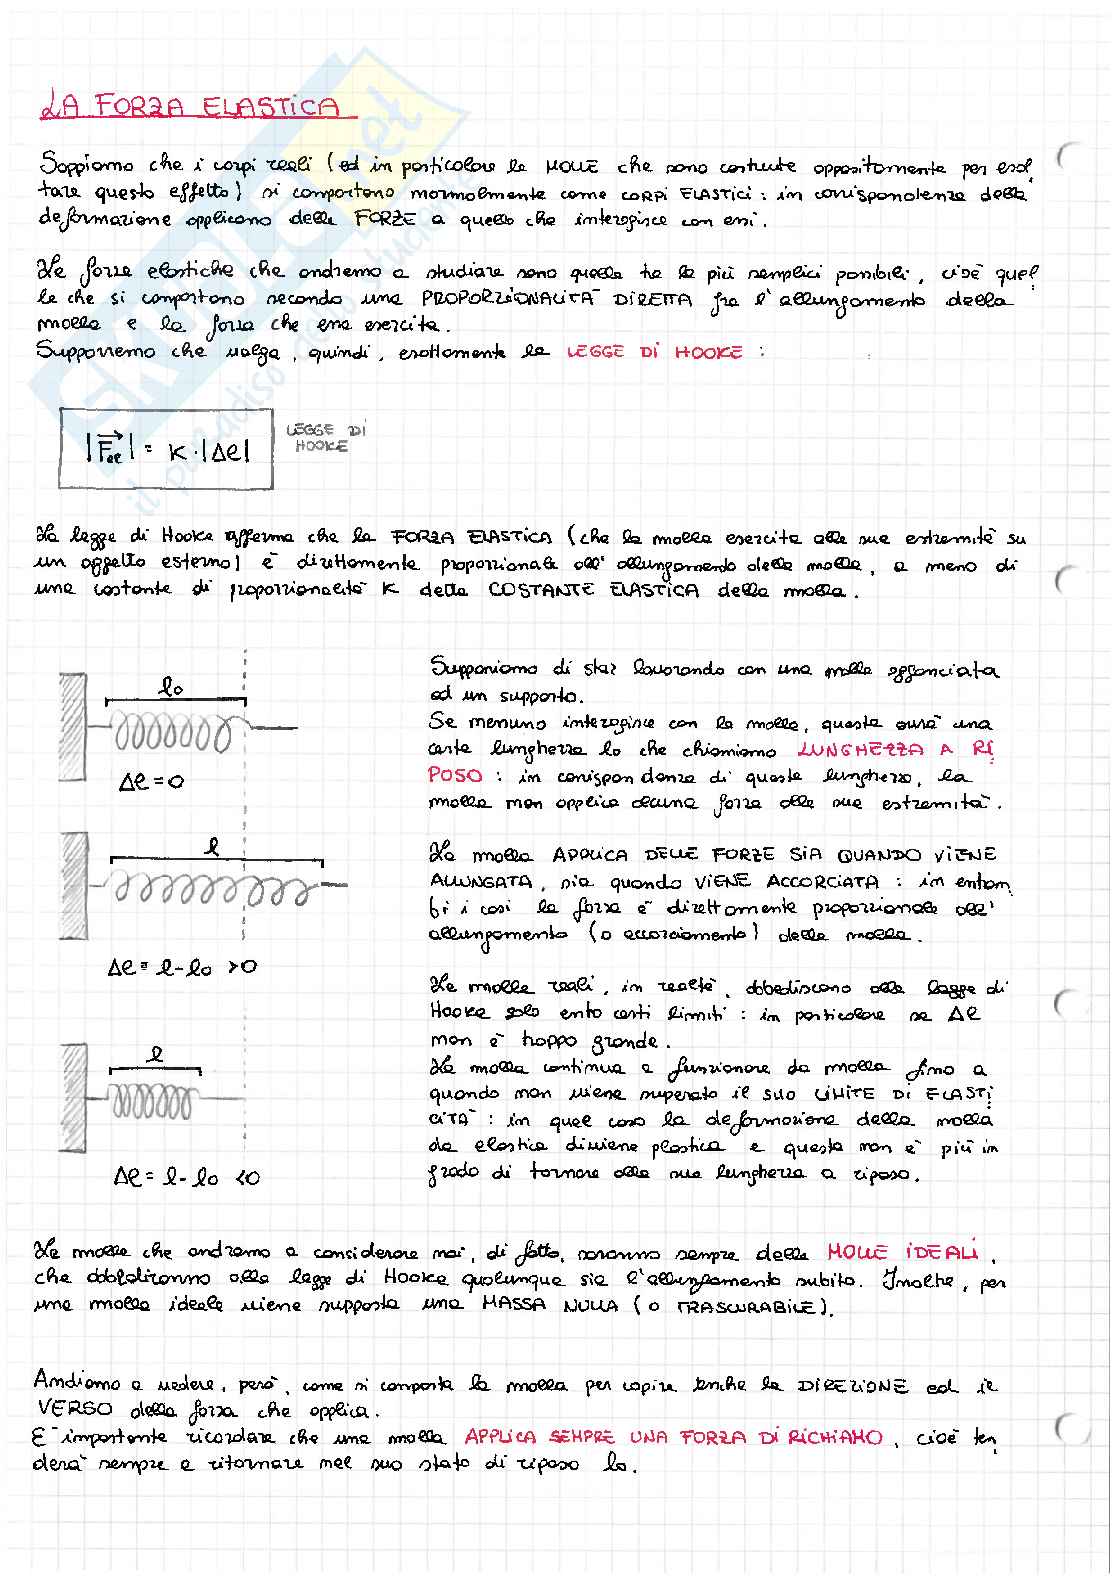 LA FORZA ELASTICA
Sappiamo che i corpi reali (ed in particolare le MOLLE che sono costruite appositamente per esal
tare questo effetto) si comportano normalmente come CORPI ELASTICI: in corrispondenza della
deformazione applicano delle FORZE a quello che interagisce con essi.
Le forze elastiche che andremo a studiare sono quelle tra le più semplici possibili, cioè quel
le che si comportano secondo una PROPORZIONALITÀ DIRETTA fra l'allungamento della
molla e la forza che essa esercita.
Supporremo che valga, quindi, esattamente la LEGGE DI HOOKE :
|F⃗el| = K·|Δl|
LEGGE DI
HOOKE
La legge di Hooke afferma che la FORZA ELASTICA (che la molla esercita alle sue estremità su
un oggetto esterno) è direttamente proporzionale all'allungamento della molla, a meno di
una costante di proporzionalità K detta COSTANTE ELASTICA della molla.
l0
Δl=0
Supponiamo di star lavorando con una molla agganciata
ad un supporto.
Se nessuno interagisce con la molla, questa avrà una
certa lunghezza l0 che chiamiamo LUNGHEZZA A RI
POSO : in corrispondenza di questa lunghezza, la
molla non applica alcuna forza alle sue estremità.
l
Δl= l-l0 >0
La molla APPLICA DELLE FORZE SIA QUANDO VIENE
ALLUNGATA, sia quando VIENE ACCORCIATA : in entram
bi i casi la forza è direttamente proporzionale all'
allungamento (o accorciamento) della molla.
l
Δl= l-l0 <0
Le molle reali, in realtà, obbediscono alla legge di
Hooke solo entro certi limiti : in particolare se Δl
non è troppo grande.
La molla continua a funzionare da molla fino a
quando non viene superato il suo LIMITE DI ELASTI
CITÀ : in quel caso la deformazione della molla
da elastica diviene plastica e questa non è più in
grado di tornare alla sua lunghezza a riposo.
Le molle che andremo a considerare noi, di fatto, saranno sempre delle MOLLE IDEALI,
che obbediranno alla legge di Hooke qualunque sia l'allungamento subito. Inoltre, per
una molla ideale viene supposta una MASSA NULLA (o TRASCURABILE).
Andiamo a vedere, però, come si comporta la molla per capire anche la DIREZIONE ed il
VERSO della forza che applica.
È importante ricordare che una molla APPLICA SEMPRE UNA FORZA DI RICHIAMO, cioè ten
derà sempre a ritornare nel suo stato di riposo l0.